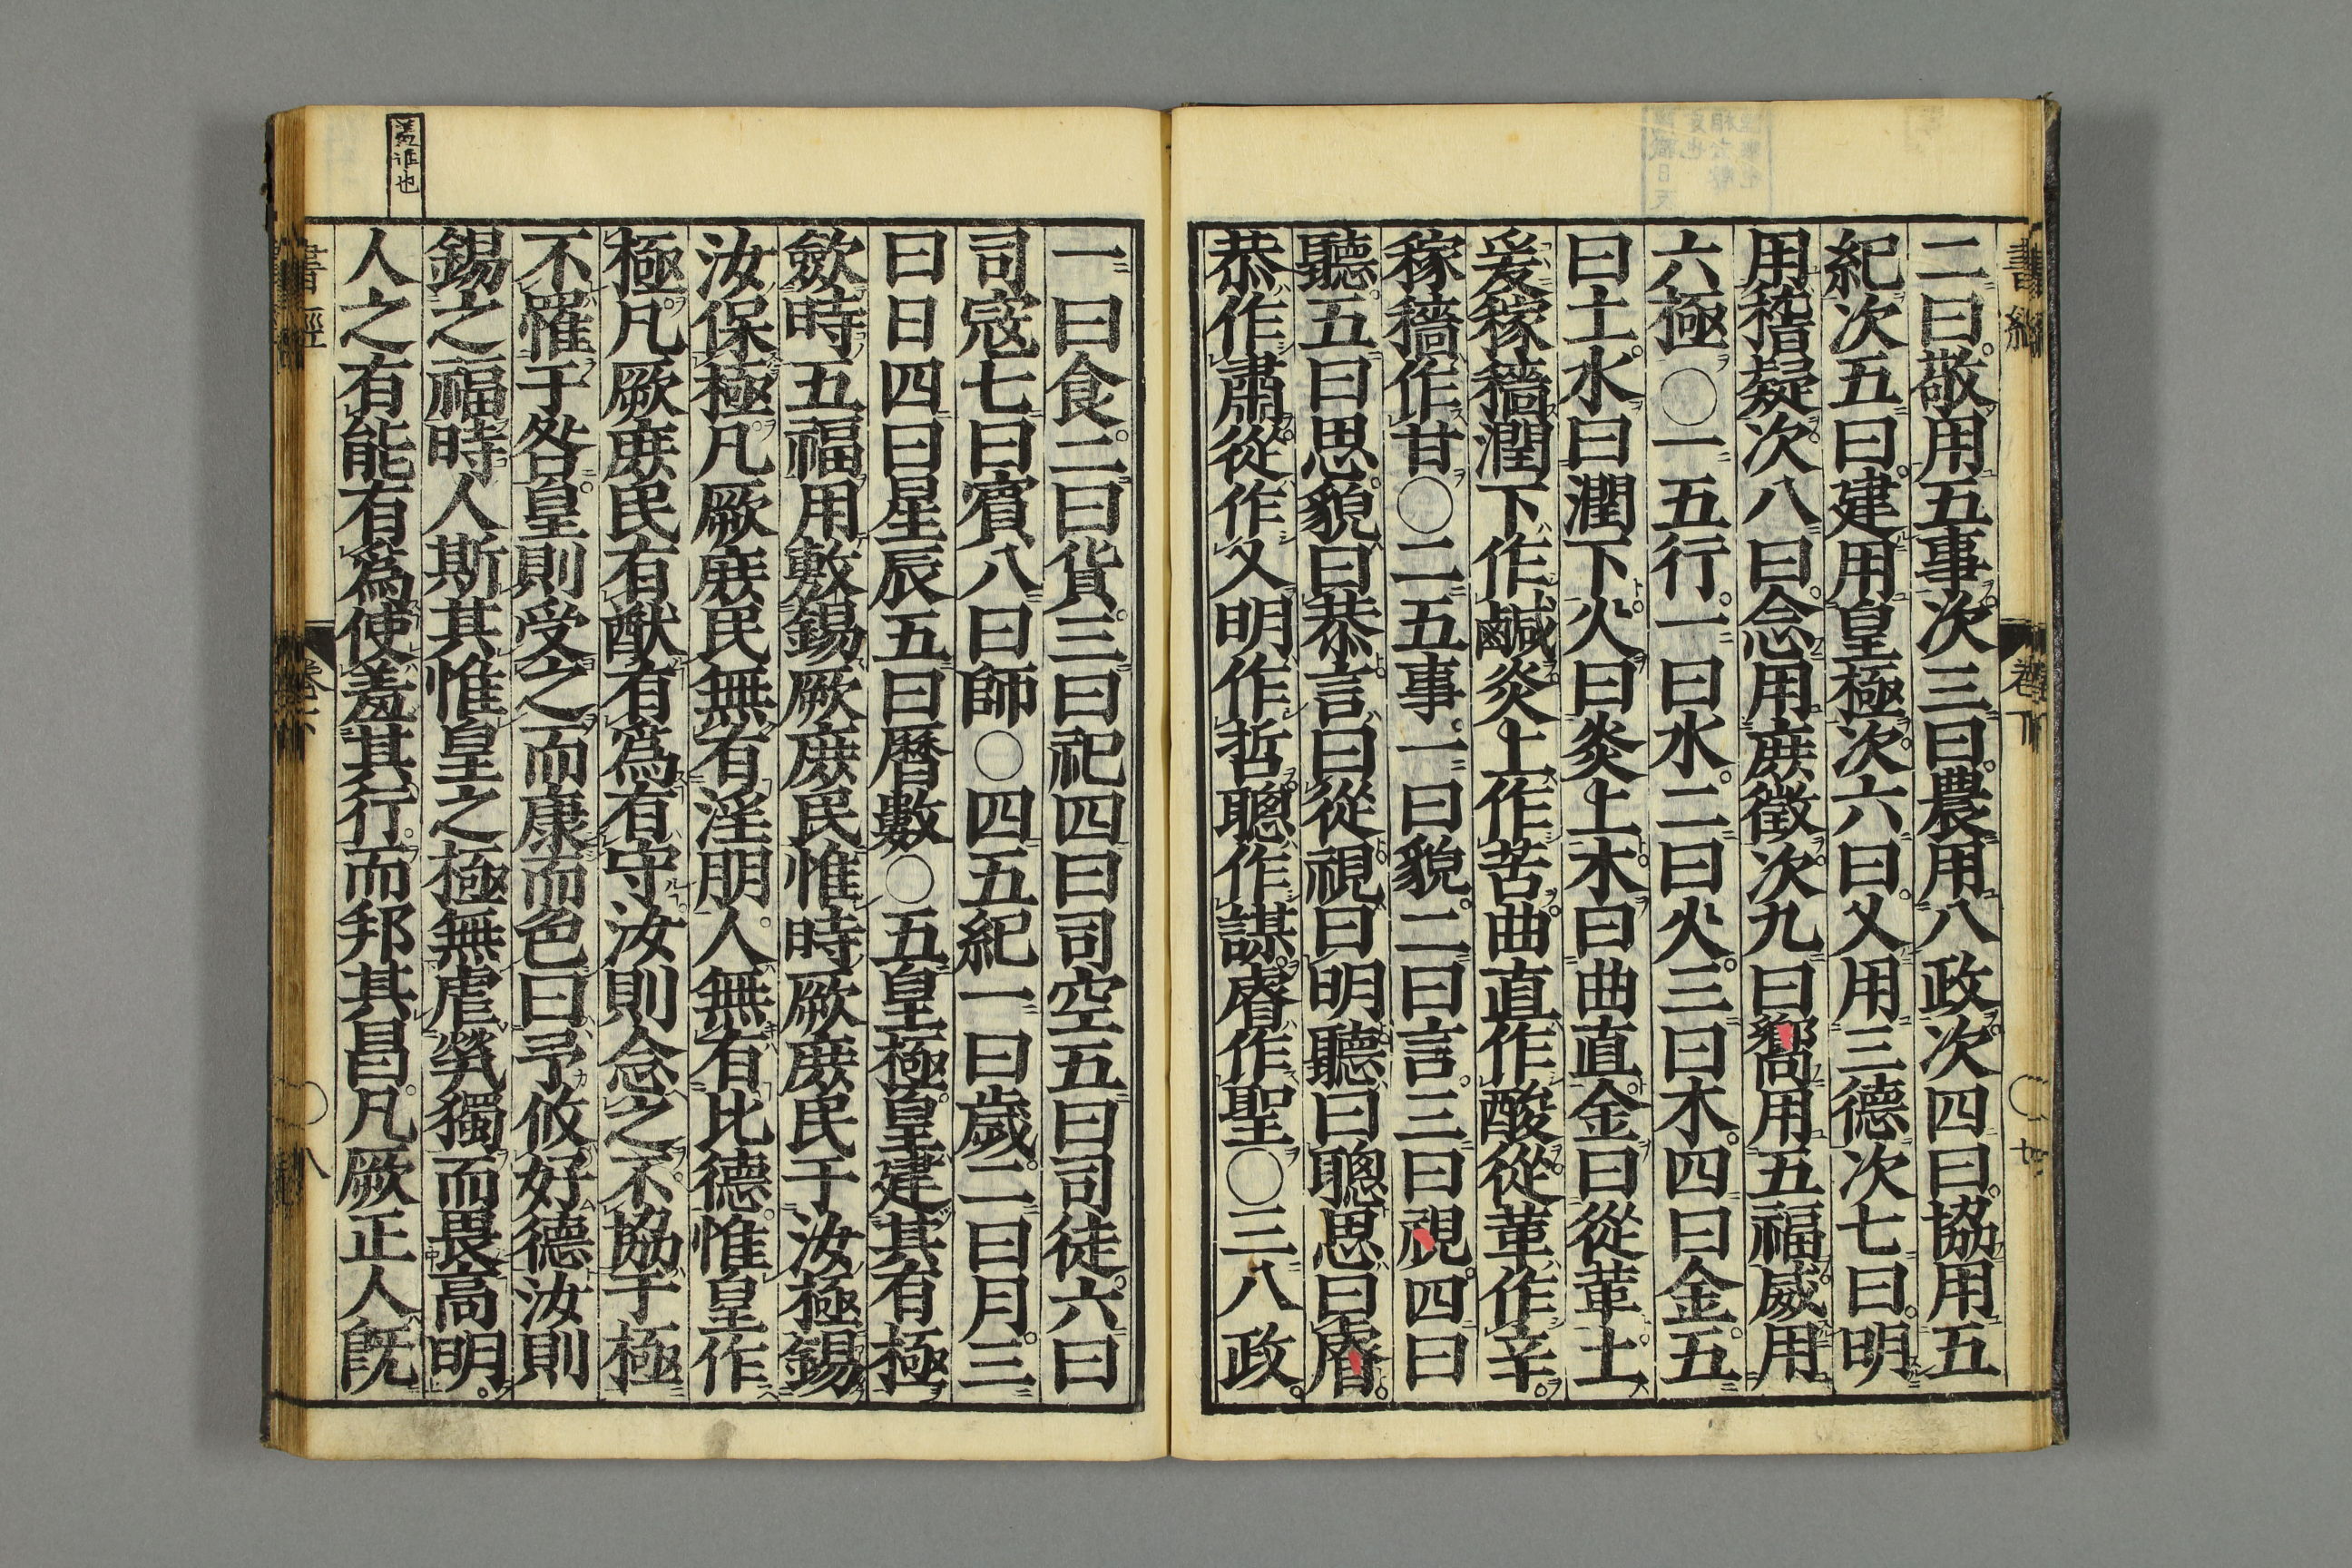 二曰敬用五事次三曰農用八政次四曰協用五
紀次五曰建用皇極次六曰乂用三德次七曰明
用稽疑次八曰念用庶徵次九曰嚮用五福威用
六極○一五行一曰水二曰火三曰木四曰金五
曰土水曰潤下火曰炎上木曰曲直金曰從革土
爰稼穡潤下作鹹炎上作苦曲直作酸從革作辛
稼穡作甘○二五事一曰貌二曰言三曰視四曰
聽五曰思貌曰恭言曰從視曰明聽曰聰思曰睿
恭作肅從作乂明作哲聰作謀睿作聖○三八政
一曰食二曰貨三曰祀四曰司空五曰司徒六曰
司寇七曰賓八曰師○四五紀一曰歲二曰月三
曰日四曰星辰五曰曆數○五皇極皇建其有極
歛時五福用敷錫厥庶民惟時厥庶民于汝極錫
汝保極凡厥庶民無有淫朋人無有比德惟皇作
極凡厥庶民有猷有爲有守汝則念之不協于極
不罹于咎皇則受之而康而色曰予攸好德汝則
錫之福時人斯其惟皇之極無虐煢獨而畏高明
人之有能有爲使羞其行而邦其昌凡厥正人旣
羞進也
書經